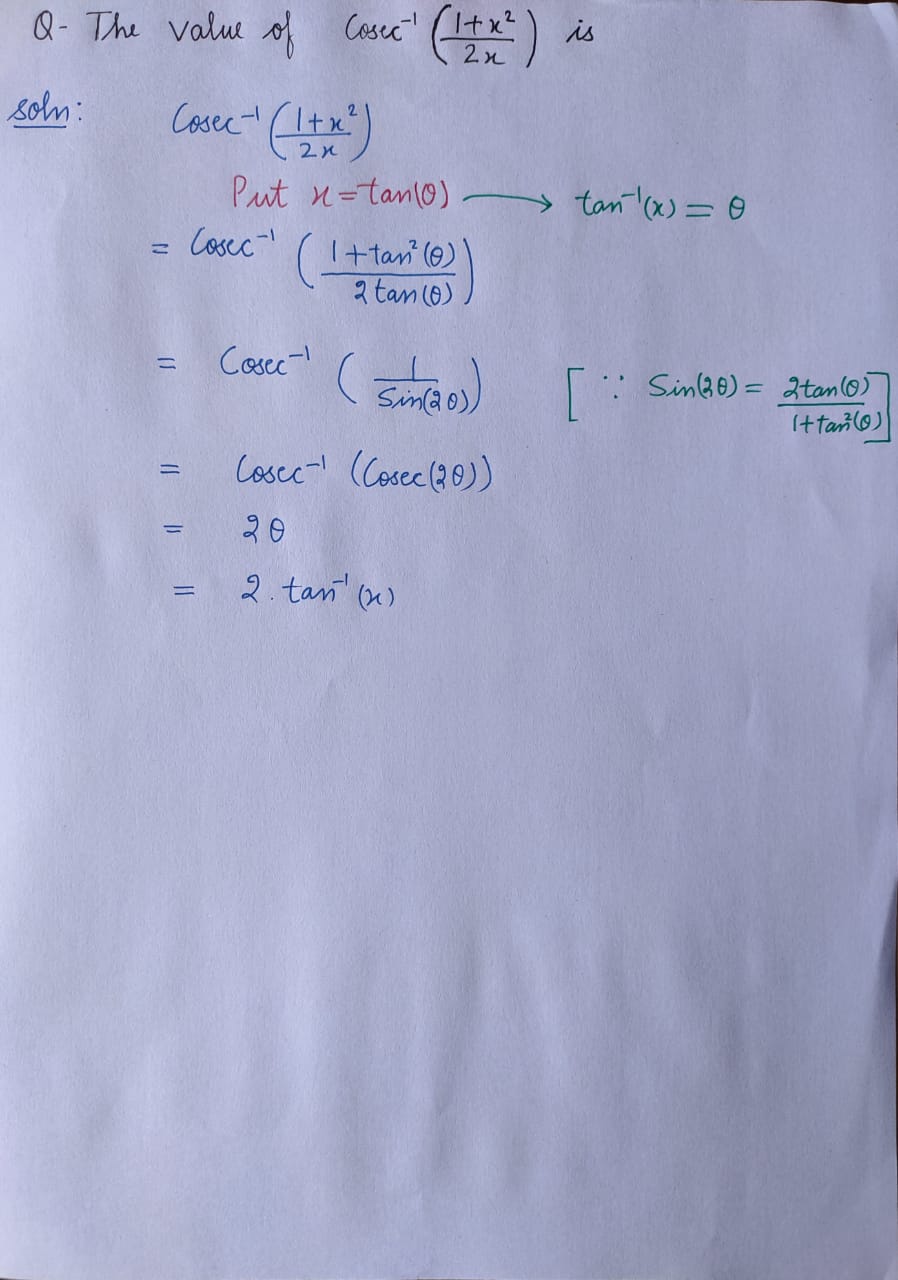 Q- The value of Cosec⁻¹ ((1+x²)/(2x)) is
soln: Cosec⁻¹ ((1+x²)/(2x))
Put x=tan(θ) → tan⁻¹(x) = θ
= Cosec⁻¹ ((1+tan²(θ))/(2tan(θ)))
= Cosec⁻¹ (1/(Sin(2θ))) [∵ Sin(2θ) = (2tan(θ))/(1+tan²(θ))]
= Cosec⁻¹ (Cosec(2θ))
= 2θ
= 2. tan⁻¹(x)